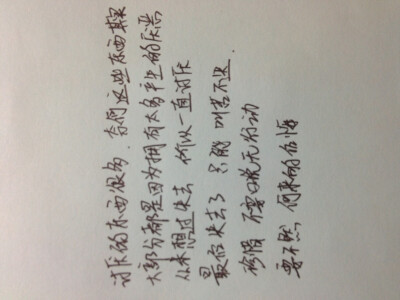 讨厌的东西很多、有何这些东西
大部分都是因为拥有太多产生的厌恶
从未想过失去 所以一直讨厌
最后失去了 只能 叫苦不迭.
矫情 不要口说无行动
要不然 何来的后悔